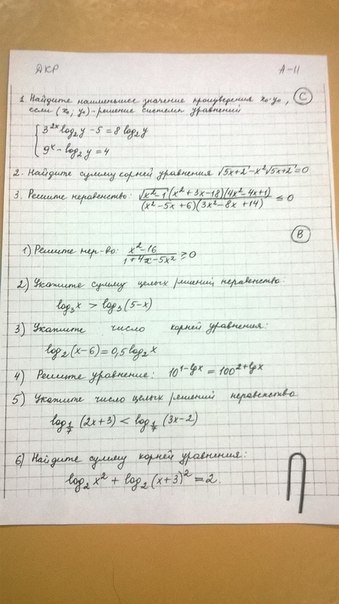 ДКР А-11
1. Найдите наименьшее значение произведения x₀·y₀, (C)
если (x₀, y₀) - решение системы уравнений
{ 3^(2x) log₂y - 5 = 8 log₂y
9^x - log₂y = 4
2. Найдите сумму корней уравнения √(5x+2) - x²√(5x+2) = 0
3. Решите неравенство: (√(x²-1)(x²+3x-18)(4x²-4x+1))/((x²-5x+6)(3x²-8x+14)) ≤ 0
(B)
1) Решите нер-во: (x²-16)/(1+4x-5x²) ≥ 0
2) Укажите сумму целых решений неравенства:
log₃x > log₃(5-x)
3) Укажите число корней уравнения:
log₂(x-6) = 0,5 log₂x
4) Решите уравнение: 10^(1-lgx) = 100^(2+lgx)
5) Укажите число целых решений неравенства
log_(1/7)(2x+3) < log_(1/7)(3x-2)
6) Найдите сумму корней уравнения:
log₂x² + log₂(x+3)² = 2.